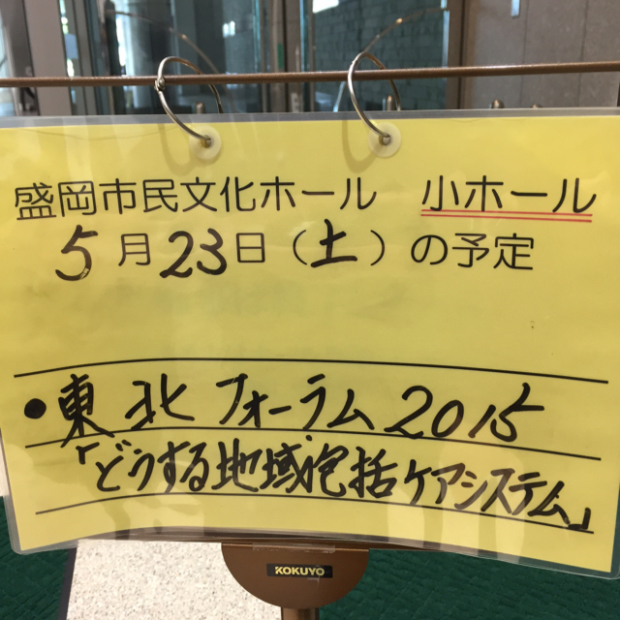 盛岡市民文化ホール 小ホール
5月23日（土）の予定
●東北フォーラム2015
「どうする地域包括ケアシステム」
KOKUYO